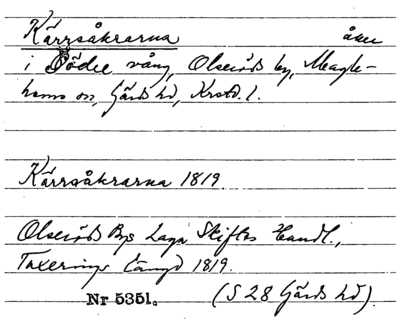 Kärrsåkrarna åker
i Södre vång, Olseröds by, Maglehems sn, Gärds hd, Krstd. l.
Kärrsåkrarna 1819
Olseröds Bys Laga Skiftes Handl.,
Taxerings Längd 1819.
Nr 5351. (S 28 Gärds hd).